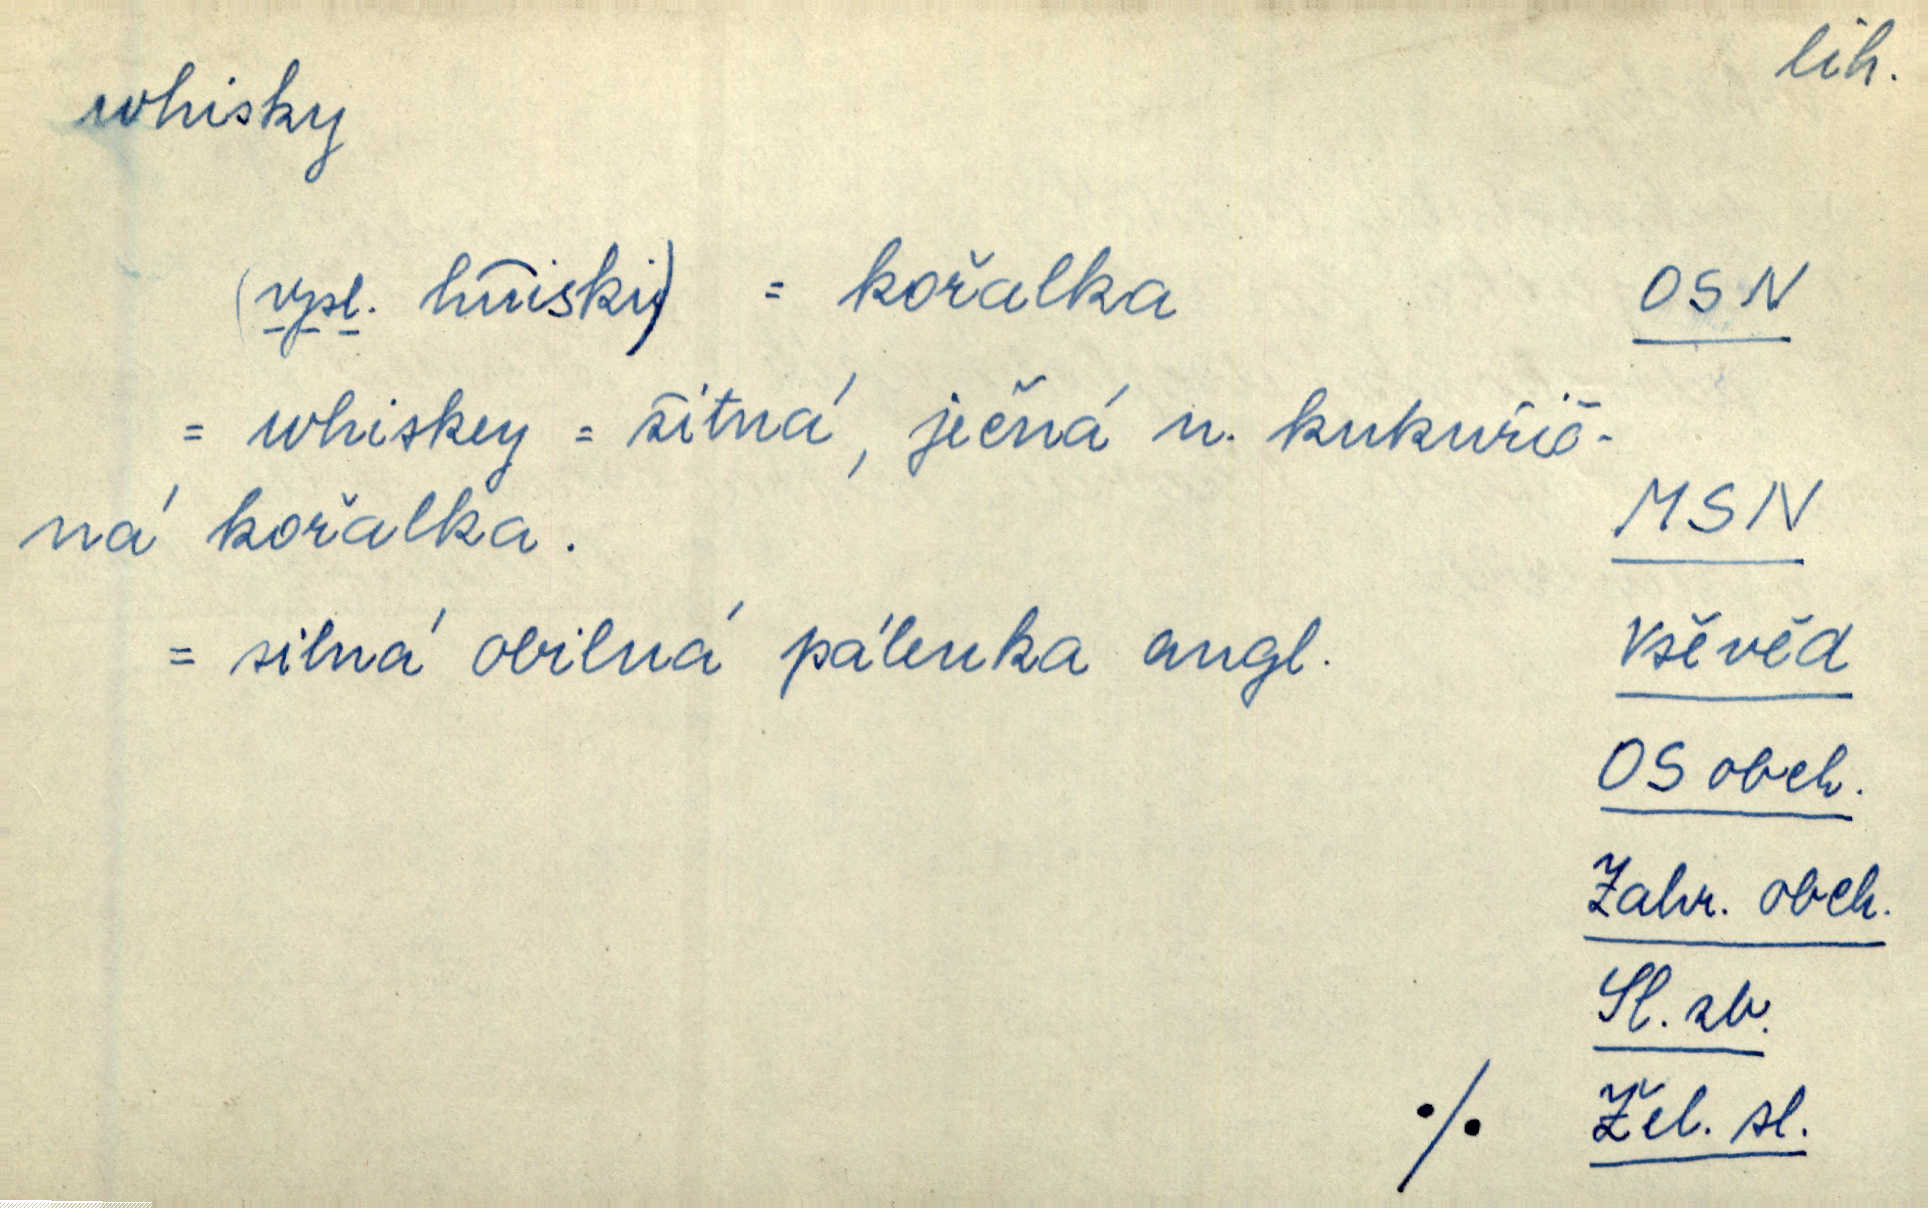 lih.
whisky
(vysl. hu͡iski) = kořalka OSN
= whiskey = žitná, ječná n. kukuřič-
ná kořalka. MSN
= silná obilná pálenka angl. Vševěd
OS obch.
Zahr. obch.
Sl. zb.
·/· Žel. sl.